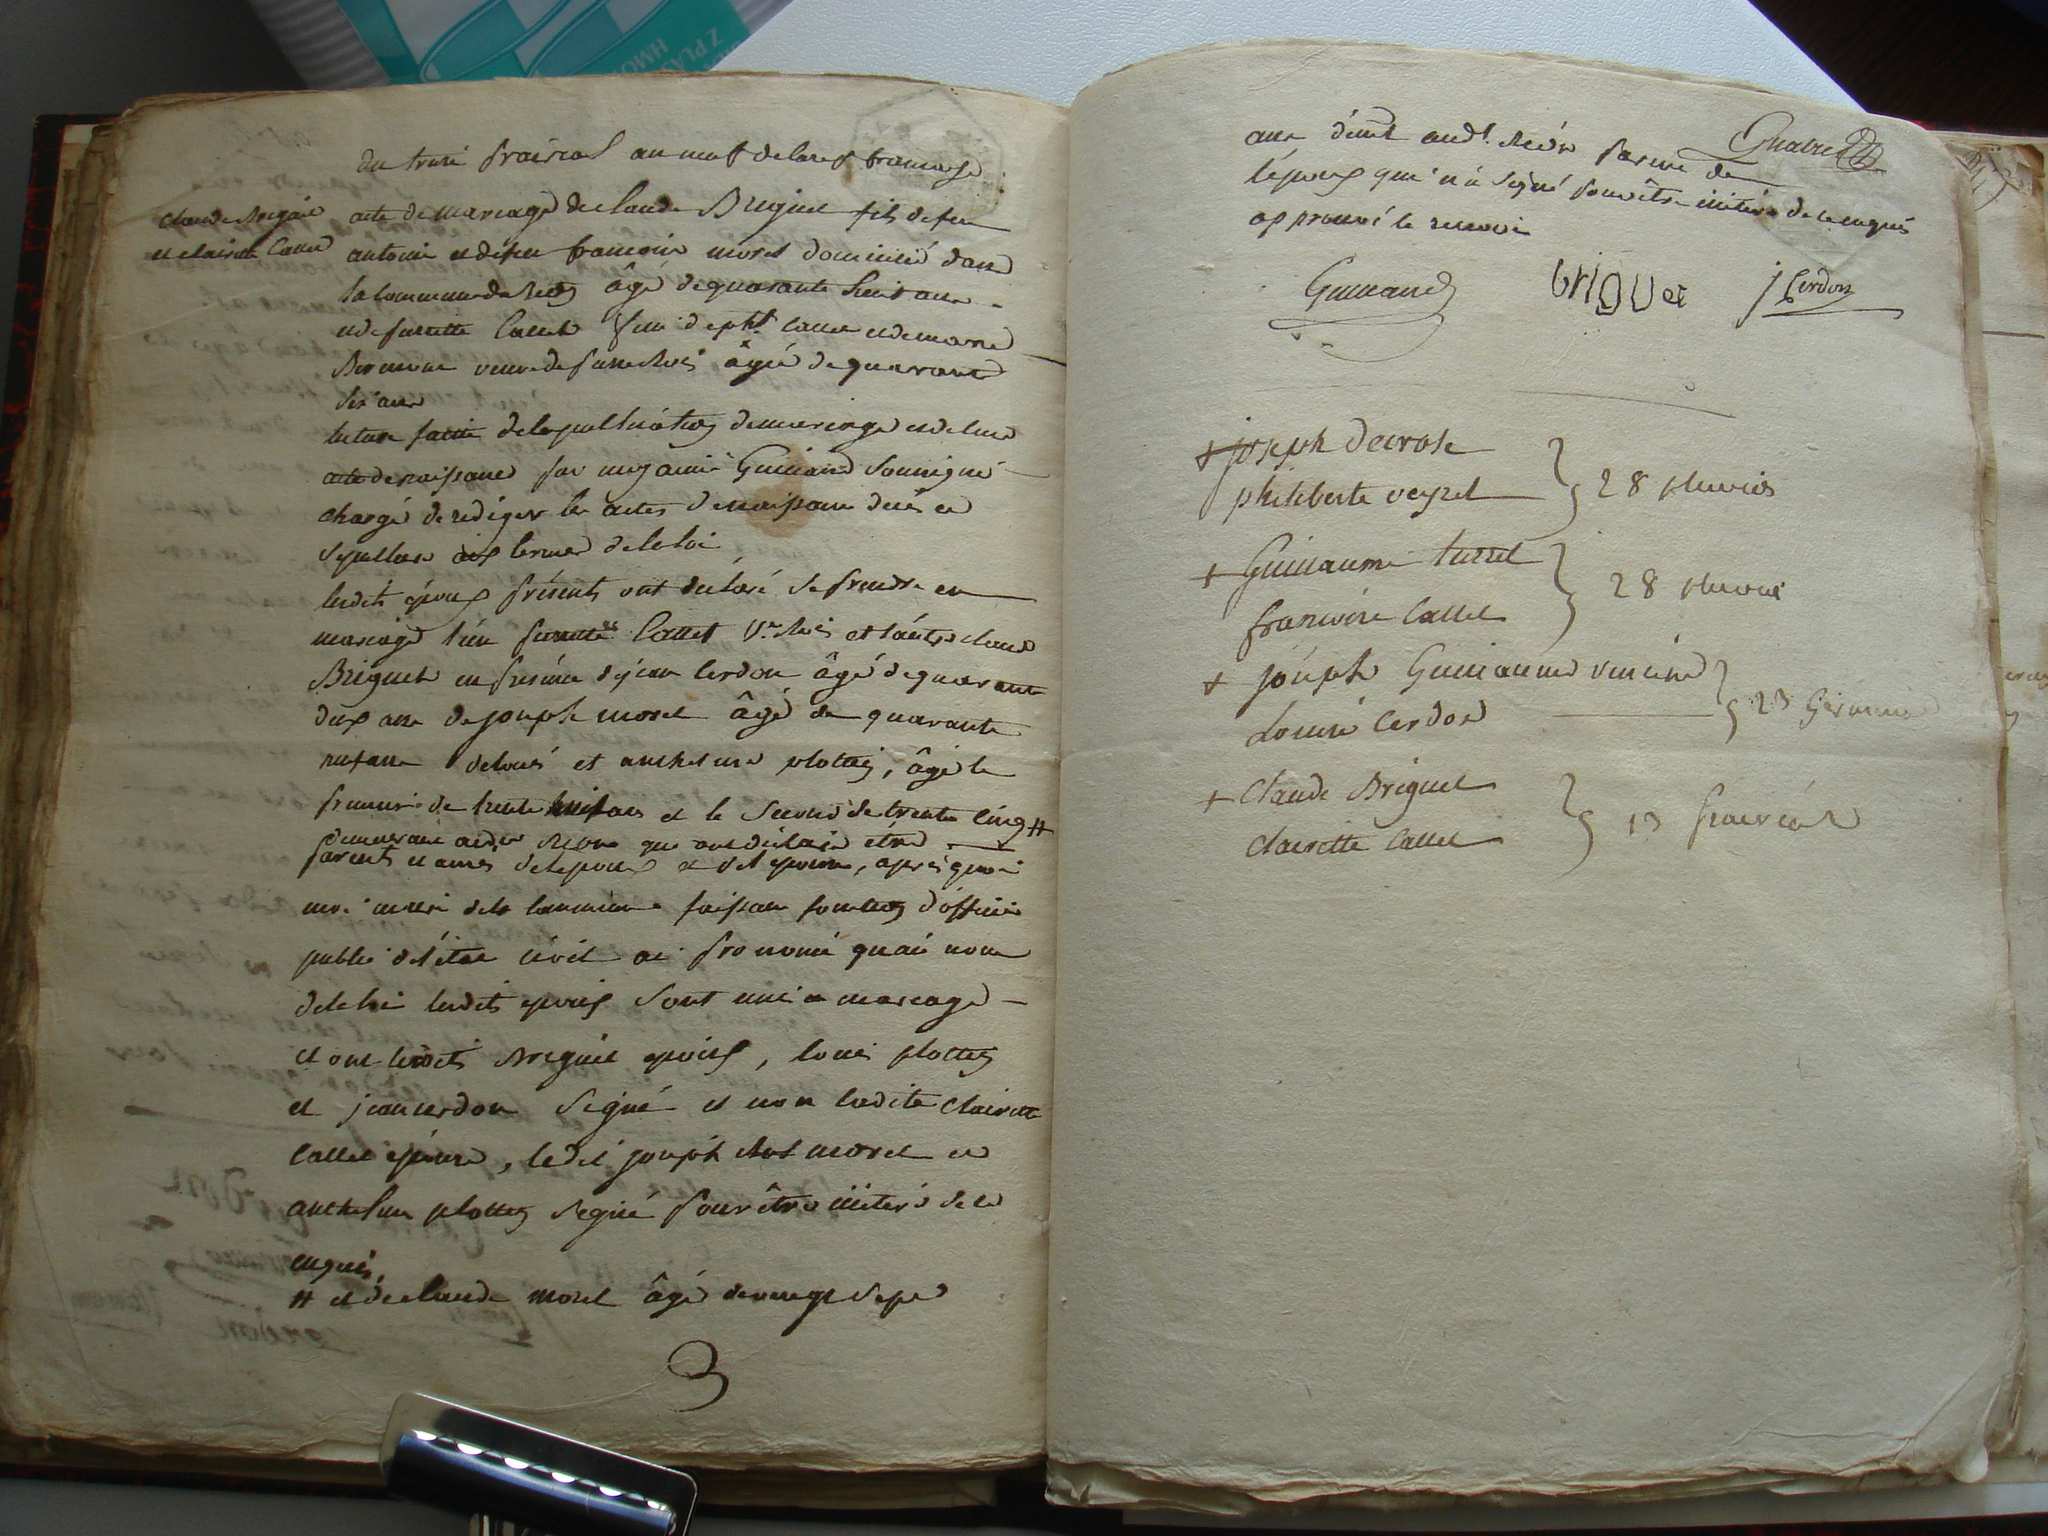 du treize prairial an neuf de la rep. française
Claude Briguet
et Clairette Callet
acte de mariage de Claude Briguet fils de feu
antoine et de feu françoise morel domicilié dans
la commune de âgé de quarante huit ans
et de Callet fille de pht. Callet et de marie
veuve de âgée de quarante
six ans
lecture faite de la publication de mariage et de leur
acte de naissance par moy Guilland soussigné
chargé de rédiger les actes de naissance décès et
sépulture aux termes de la loi
lesdits époux présents ont déclaré se prendre en
mariage l'un Callet Ve. et l'autre Claude
Briguet en présence de jean Cerdon âgé de quarante
deux ans de joseph morel âgé de quarante
neuf ans de louis et anthelme plottey, âgé le
premier de trente huit ans et le second de trente cinq #
demeurant que ont déclaré être
parents et amis de l'époux et de l'épouse, après quoi
moi maire de la commune faisant fonction d'officier
public de l'état civil ai prononcé qu'au nom
de la loi lesdits époux sont unis en mariage
et ont lesdits Briguet époux, louis plottey
et jean cerdon signé et non ladite Clairette
Callet épouse, ledit joseph morel et
anthelme plottey signé pour être illitéré de ce
enquis.
# et de claude morel âgé de vingt sept
Quatre
ans dem.t aud.t parent de
l'époux qui n'a signé pour être illitéré de ce enquis
approuvé le renvoi
Guilland briguet j Cerdon
+ joseph decrose
philiberte veyret } 28 pluviose
+ Guillaume turrel
françoise Callet } 28 pluviose
+ joseph Guillaume vincent
Louise Cerdon } 23 Germinal
+ Claude Briguet
Clairette Callet } 13 prairéal